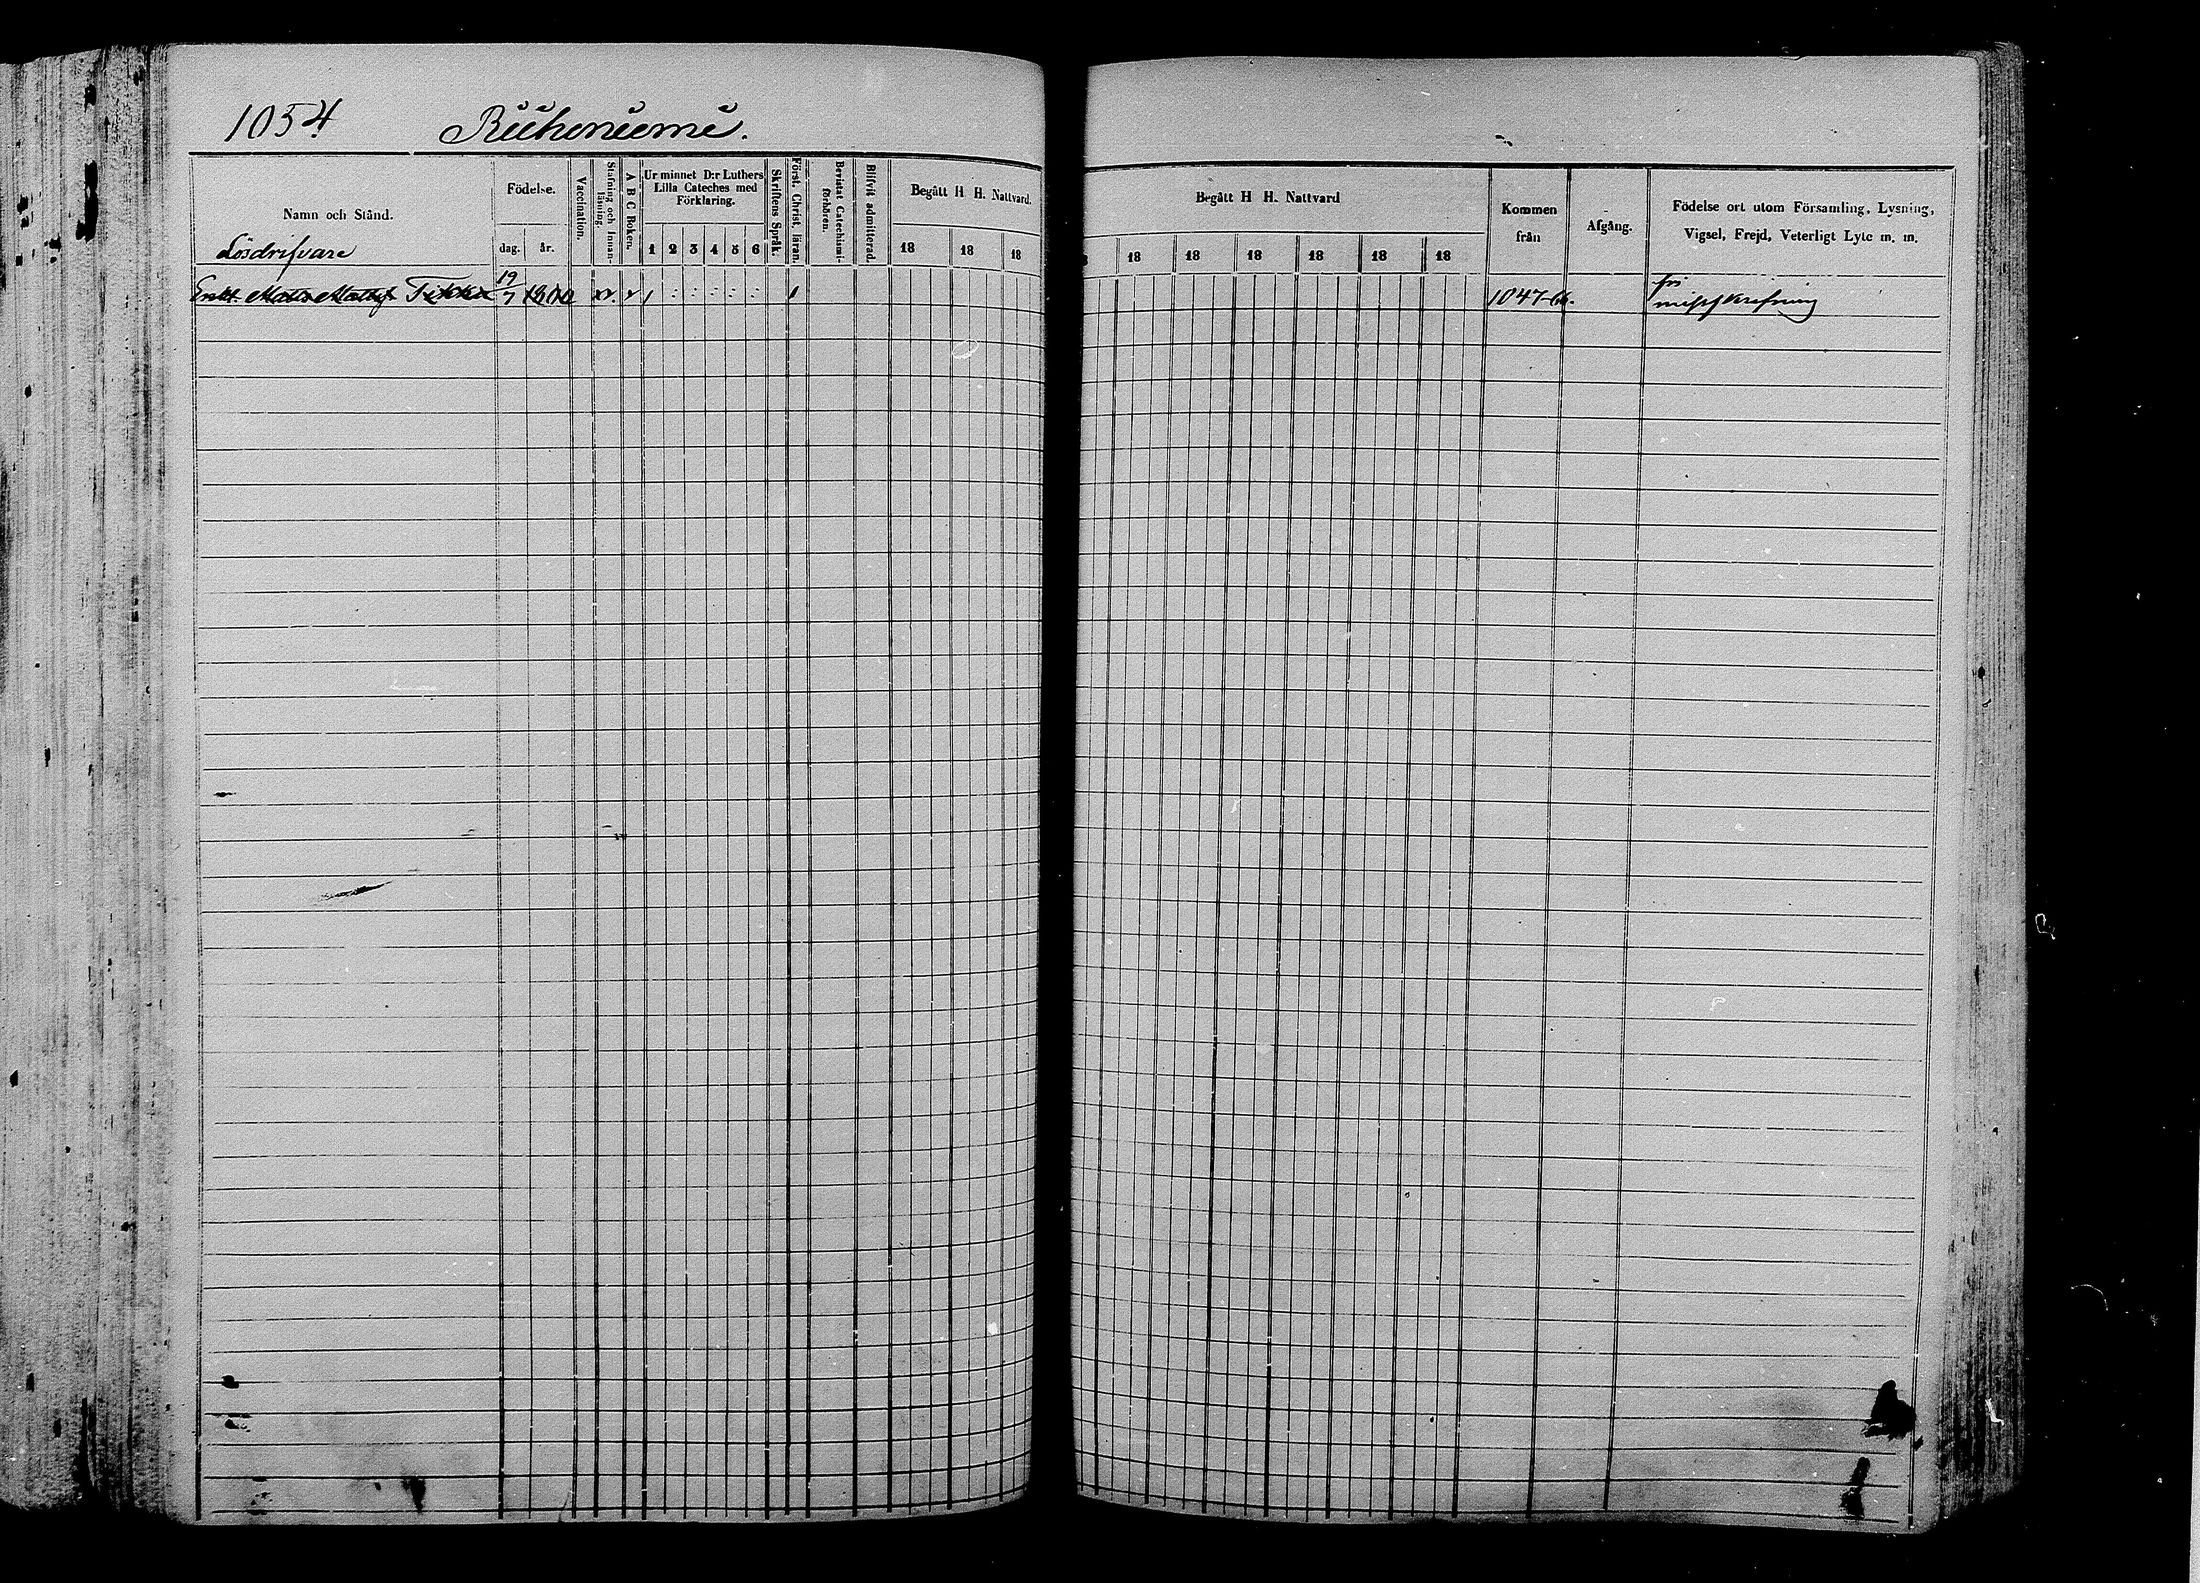 1054 Riihiniemi.
Namn och Stånd.
Lösdrifvare
Födelse.
dag. år.
Vaccination.
Stafning och Innanläsning.
A B C Boken.
Ur minnet D:r Luthers Lilla Cateches med Förklaring.
1 2 3 4 5 6
Skriftens Språk.
Först. Christ. läran.
Bevistat Catechismiförhören.
Blifvit admitterad.
Begått H H. Nattvard.
18 18 18
Begått H H. Nattvard
18 18 18 18 18 18
Kommen från
Afgång.
Födelse ort utom Församling, Lysning,
Vigsel, Frejd, Veterligt Lyte m. m.
Enkl. Matts Tikka 19/7 1800 1047-66.